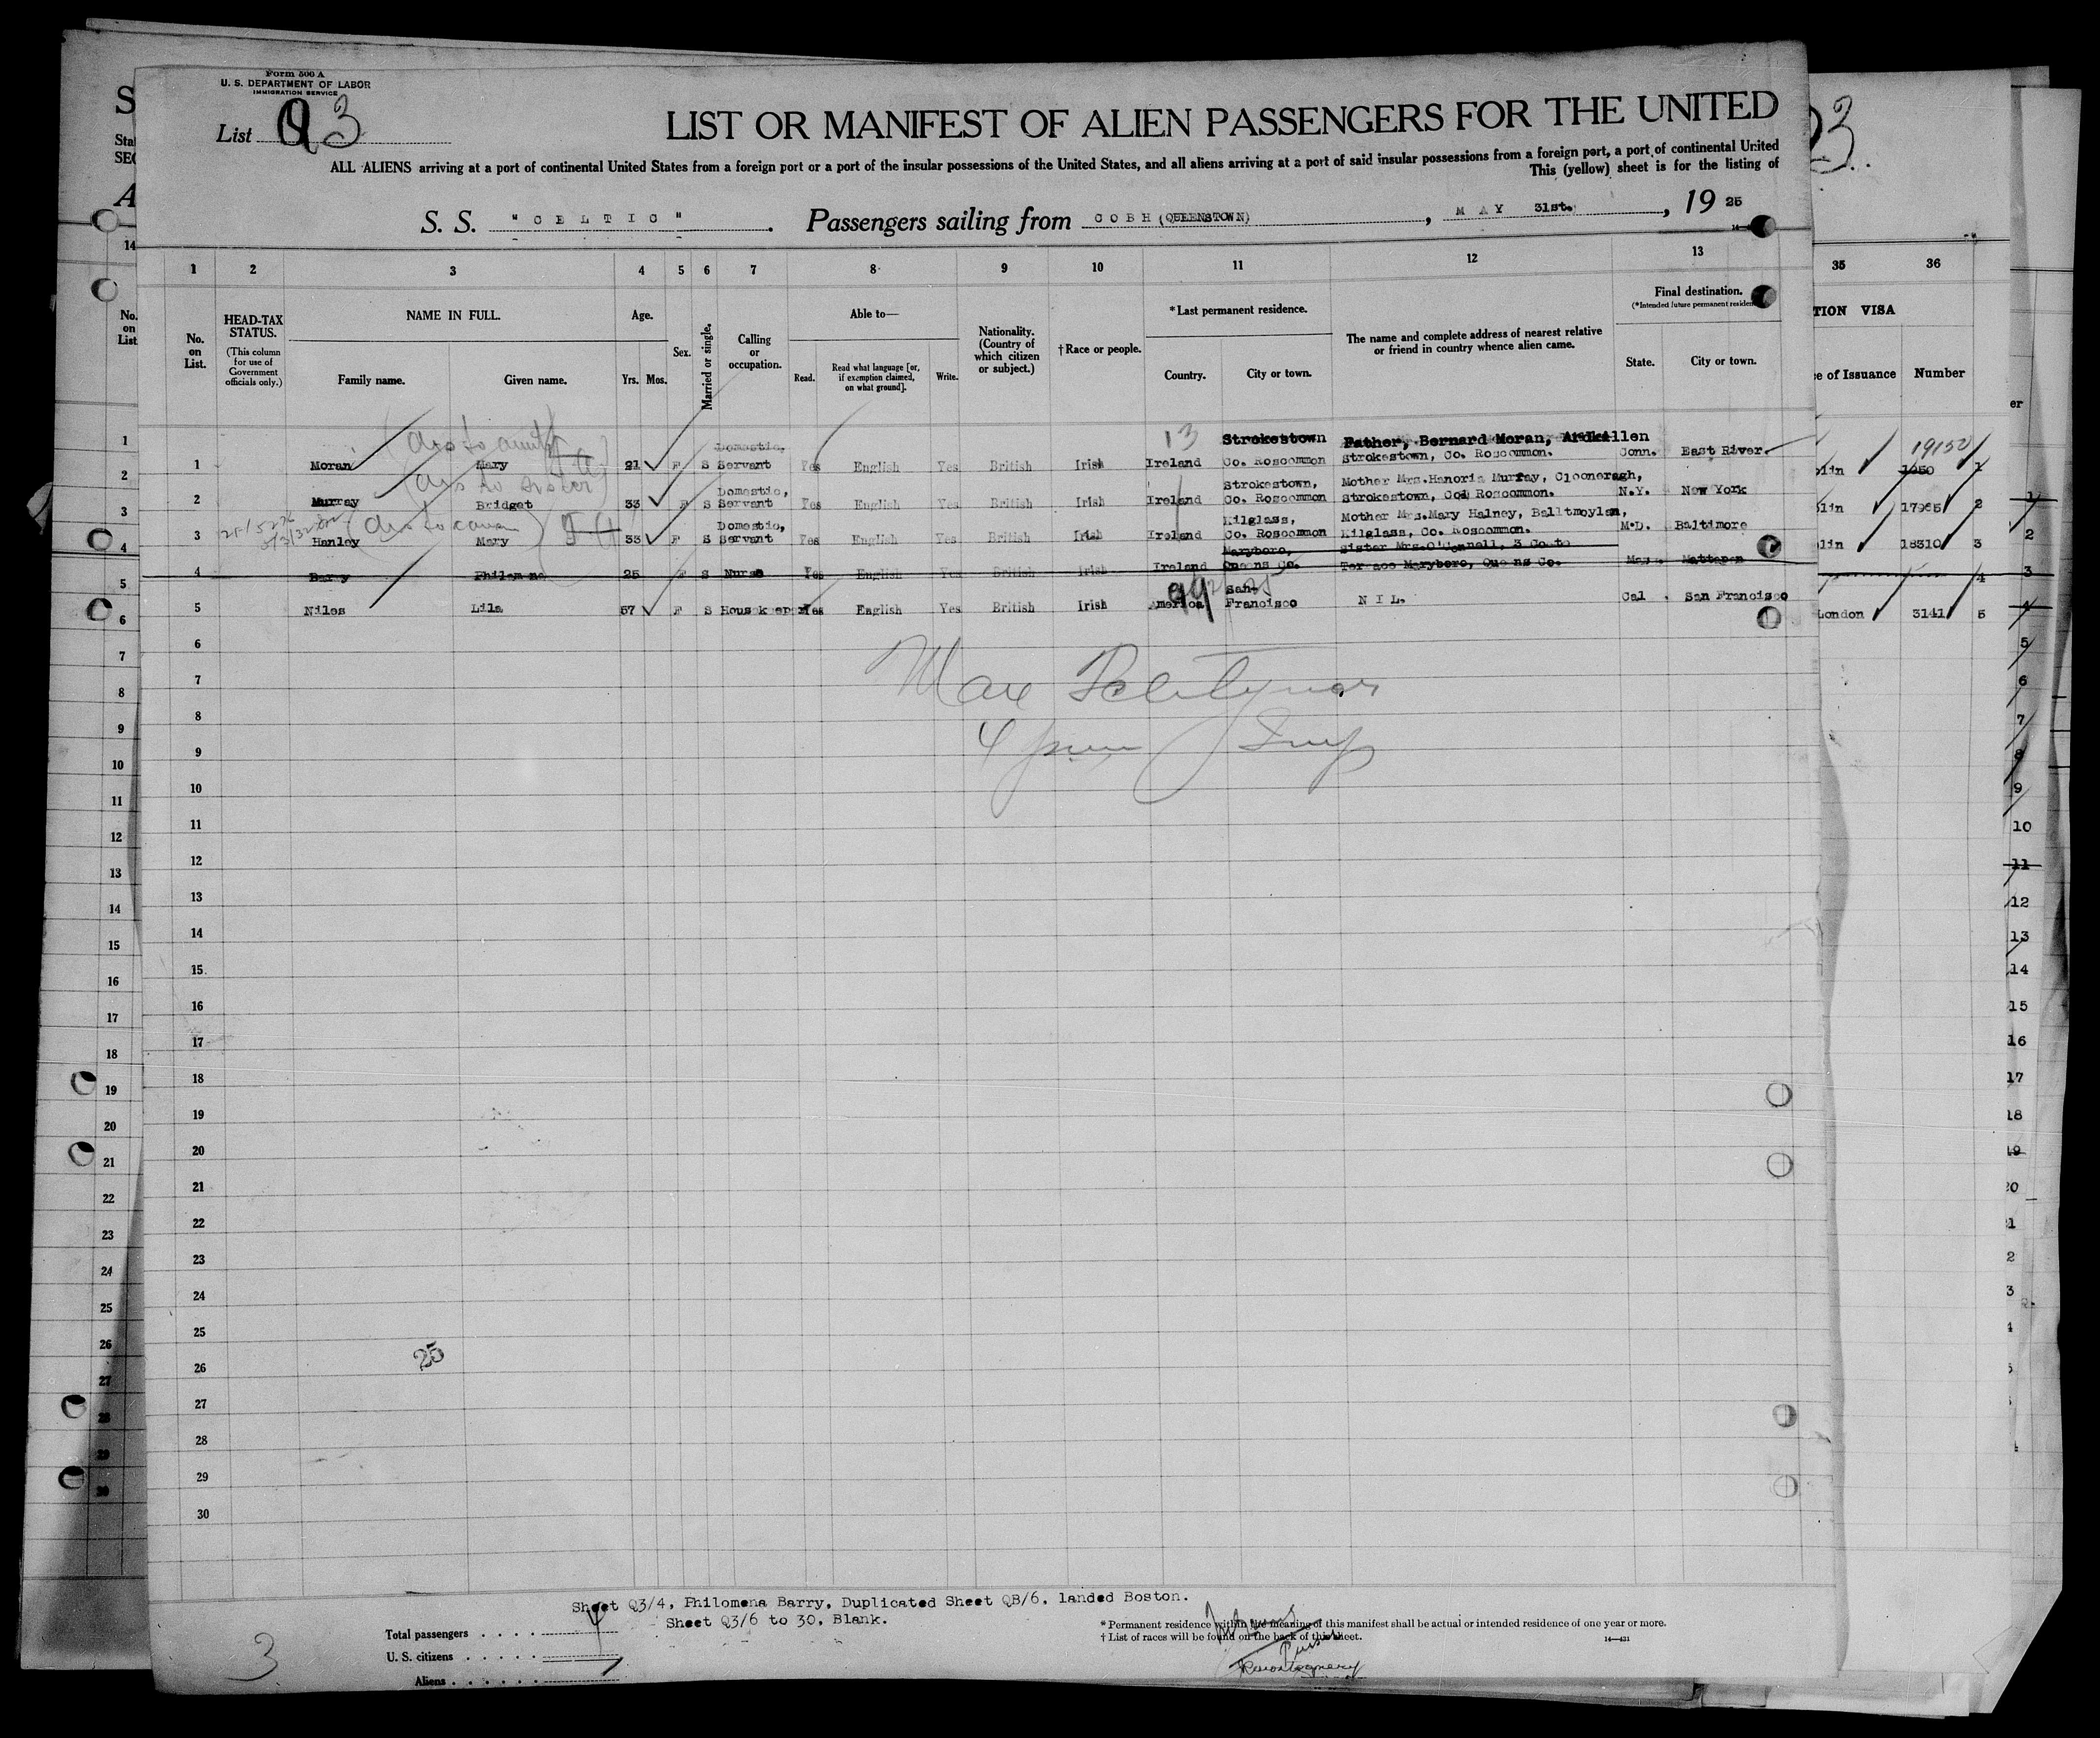 Form 500 A
U. S. DEPARTMENT OF LABOR
IMMIGRATION SERVICE
List Q3
LIST OR MANIFEST OF ALIEN PASSENGERS FOR THE UNITED
ALL ALIENS arriving at a port of continental United States from a foreign port or a port of the insular possessions of the United States, and all aliens arriving at a port of said insular possessions from a foreign port, a port of continental United
This (yellow) sheet is for the listing of
S. S. "CELTIC". Passengers sailing from COBH (QUEENSTOWN), MAY 31st., 1925
1 2 3 4 5 6 7 8 9 10 11 12 13 35 36
No. on List.
HEAD-TAX STATUS.
(This column for use of Government officials only.)
NAME IN FULL.
Family name. Given name.
Age.
Yrs. Mos.
Sex.
Married or single.
Calling or occupation.
Able to—
Read. Read what language [or, if exemption claimed, on what ground]. Write.
Nationality. (Country of which citizen or subject.)
†Race or people.
*Last permanent residence.
Country. City or town.
The name and complete address of nearest relative or friend in country whence alien came.
Final destination.
(*Intended future permanent residen
State. City or town.
TION VISA
e of Issuance Number
13 Strokestown Father, Bernard Moran, Ardkillen
1 Moran Mary 21 F S Domestic, Servant Yes English Yes British Irish Ireland Co. Roscommon Strokestown, Co. Roscommon. Conn. East River. lin 1950 19150 1
Strokestown, Mother Mrs.Hanoria Murray, Clooneragh,
2 Murray Bridget 33 F S Domestic, Servant Yes English Yes British Irish Ireland Co. Roscommon Strokestown, Co. Roscommon. N.Y. New York lin 17965 2
Kilglass, Mother Mrs.Mary Halney, Balltmoylan,
3 Hanley Mary 33 F S Domestic, Servant Yes English Yes British Irish Ireland Co. Roscommon Kilglass, Co. Roscommon. M.D. Baltimore lin 18310 3
Maryboro, Sister Mrs.O'Connell, 3 Coote
4 Barry Philomena 25 F S Nurse Yes English Yes British Irish Ireland Queens Co. Terrace Maryboro, Queens Co. Mass. Mattapan 4
99
5 Niles Lila 57 F S Housekeeper Yes English Yes British Irish America San Francisco NIL. Cal. San Francisco London 3141 5
6
7
8
9
10
11
12
13
14
15
16
17
18
19
20
21
22
23
24
25
26
27
28
29
30
25
Sheet Q3/4, Philomena Barry, Duplicated Sheet QB/6, landed Boston.
Sheet Q3/6 to 30, Blank.
Total passengers
U. S. citizens
Aliens
3
* Permanent residence within the meaning of this manifest shall be actual or intended residence of one year or more.
† List of races will be found on the back of this sheet.
14—431